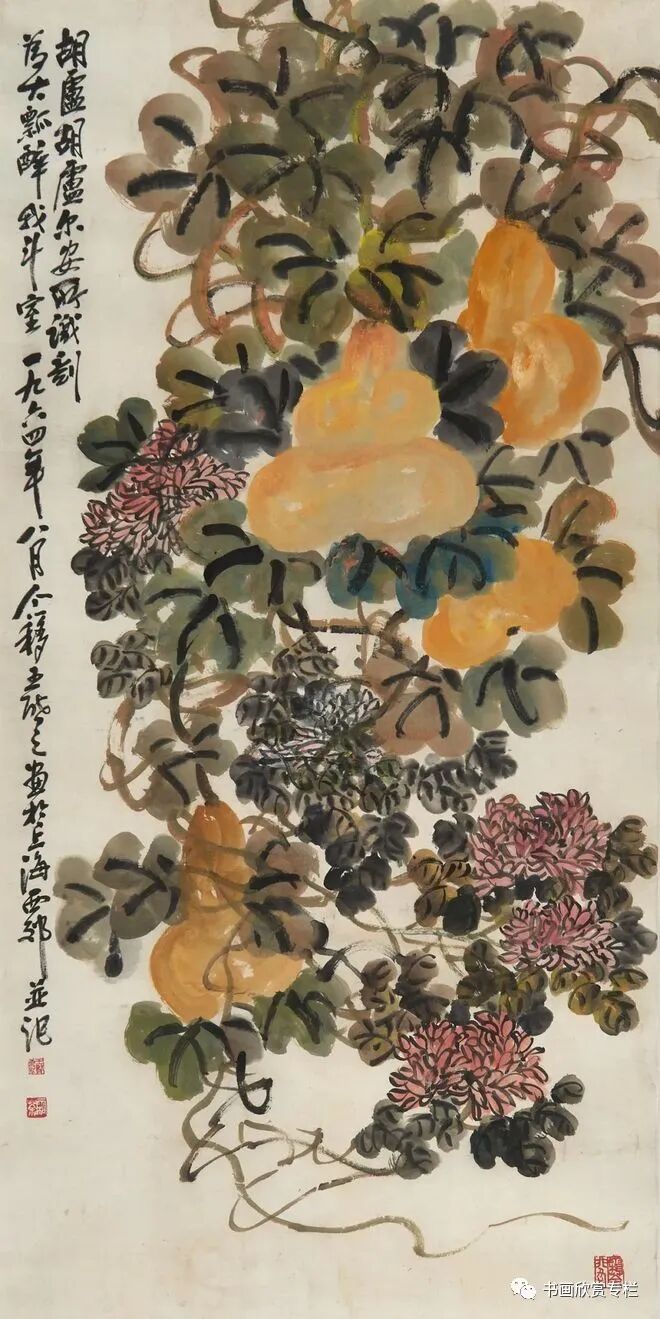 胡盧胡盧尔安所識剖
為大瓢醉我斗室 一九六四年八月个簃王啟之画於上海西郊並记
书画欣赏专栏